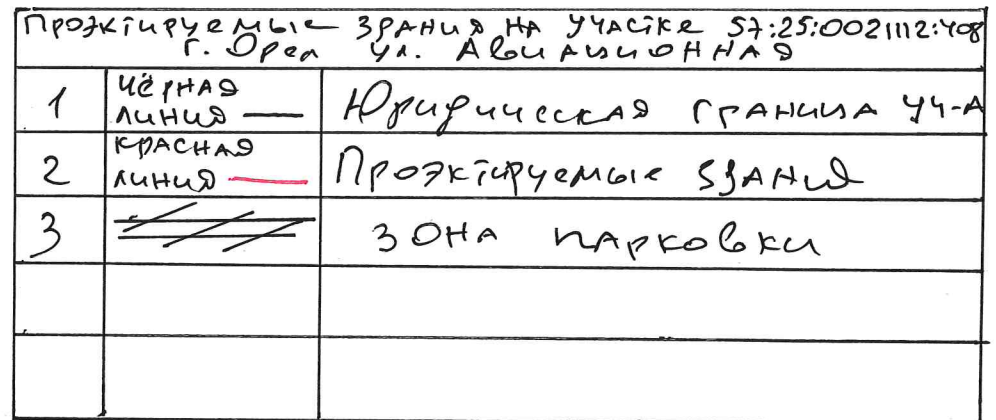 Проэктируемые здания на участке 57:25:0021112:408
г. Орел ул. Авиационная
1 Чёрная линия — Юридическая граница уч-а
2 Красная линия — Проэктируемые здания
3 Зона парковки